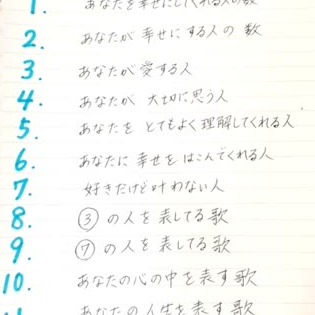 1. あなたを幸せにしてくれる人の数
2. あなたが幸せにする人の数
3. あなたが愛する人
4. あなたが大切に思う人
5. あなたをとてもよく理解してくれる人
6. あなたに幸せをはこんでくれる人
7. 好きだけど叶わない人
8. ③の人を表してる歌
9. ⑦の人を表してる歌
10. あなたの心の中を表す歌
11. あなたの人生を表す歌